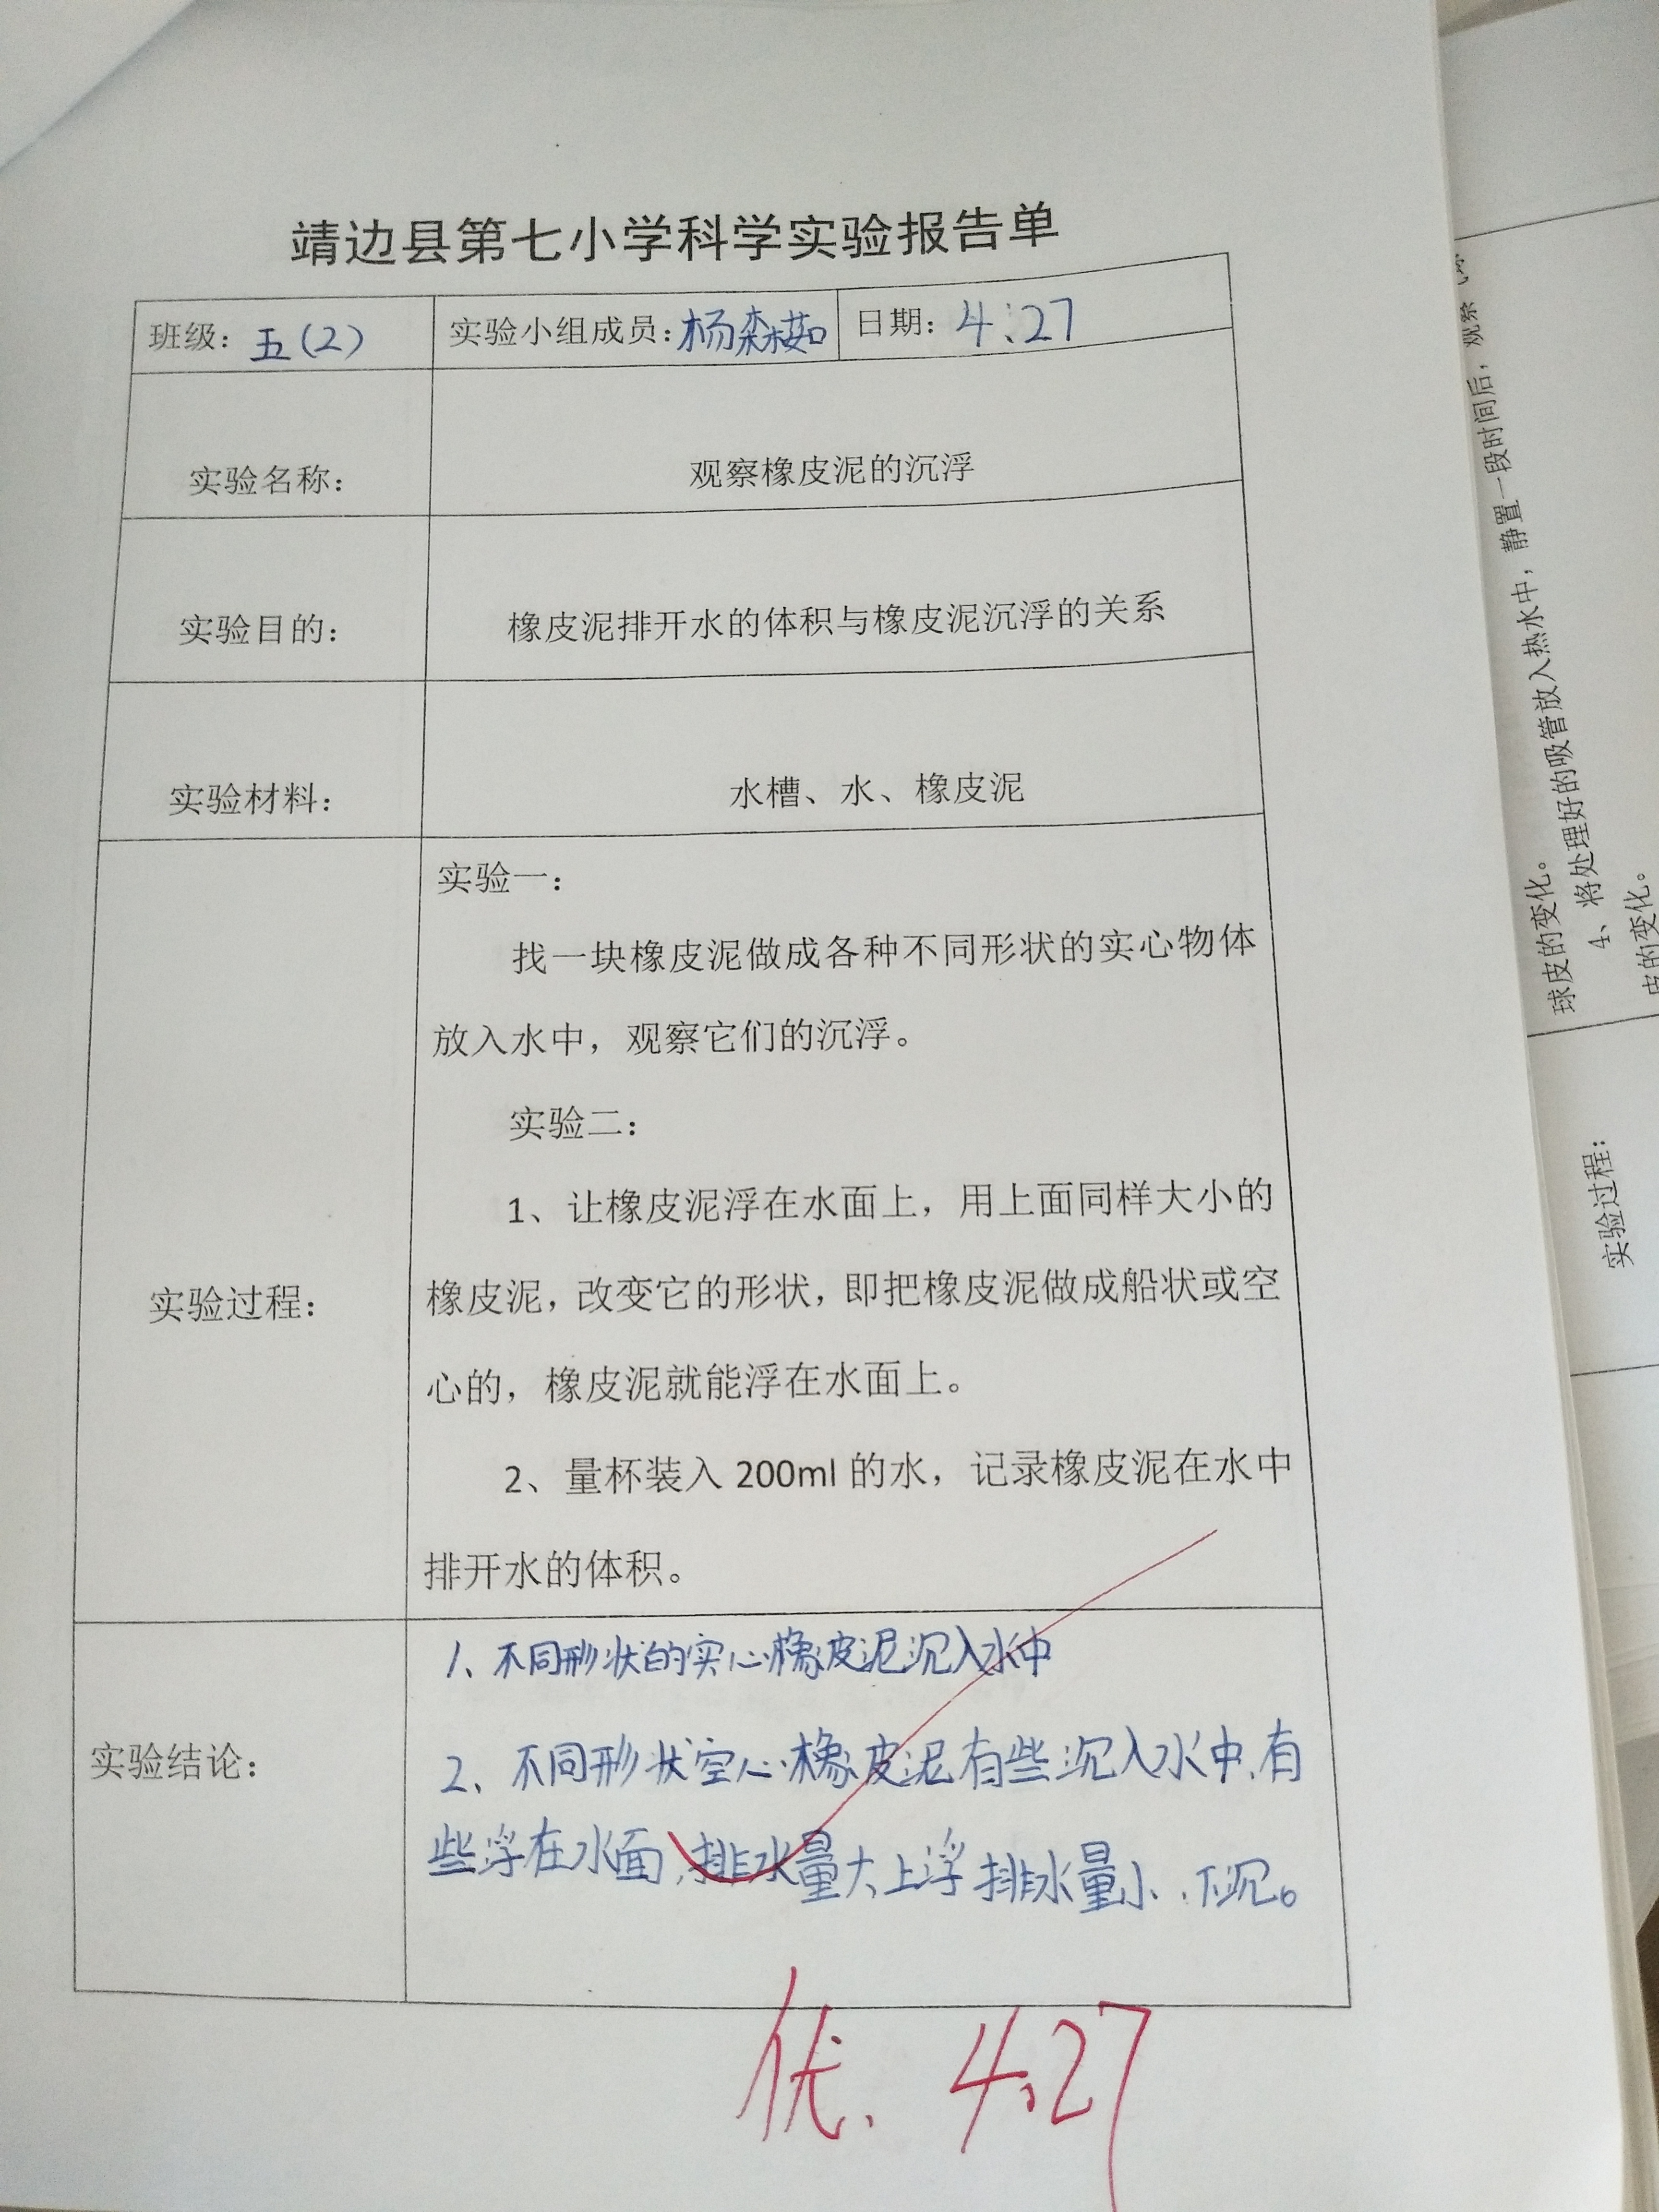 靖边县第七小学科学实验报告单
班级：五(2) 实验小组成员：杨森茹 日期：4.27
实验名称： 观察橡皮泥的沉浮
实验目的： 橡皮泥排开水的体积与橡皮泥沉浮的关系
实验材料： 水槽、水、橡皮泥
实验过程：
实验一：
找一块橡皮泥做成各种不同形状的实心物体
放入水中，观察它们的沉浮。
实验二：
1、让橡皮泥浮在水面上，用上面同样大小的
橡皮泥，改变它的形状，即把橡皮泥做成船状或空
心的，橡皮泥就能浮在水面上。
2、量杯装入 200ml 的水，记录橡皮泥在水中
排开水的体积。
实验结论：
1、不同形状的实心橡皮泥沉入水中
2、不同形状空心橡皮泥有些沉入水中,有
些浮在水面,排水量大上浮排水量小、下沉。
优. 4.27
球皮的变化。
4、将处理好的吸管放入热水中，静置一段时间后，观察
皮的变化。
实验过程：